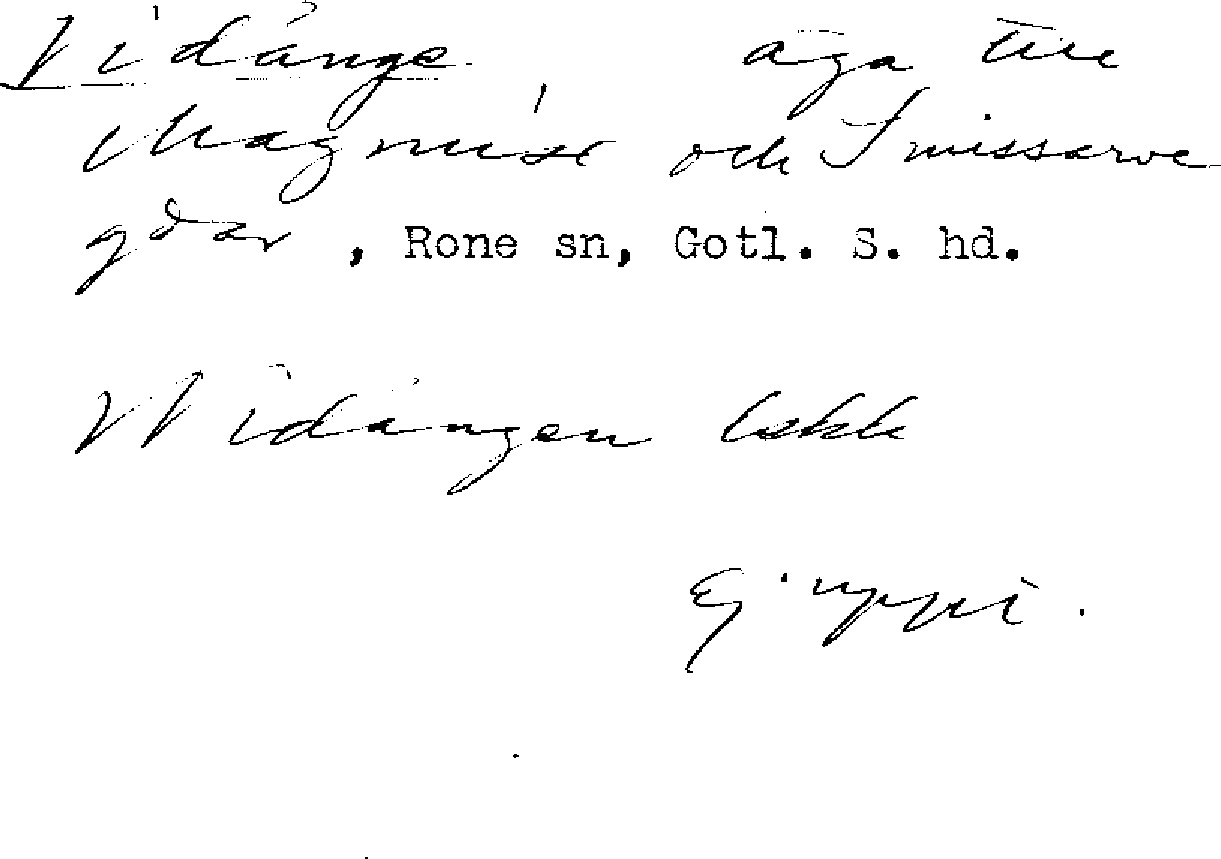 Vidänge äga till
Magnuse och Smissarve
gdar, Rone sn, Gotl. S. hd.
Widängen Lskk
Ej uppt.